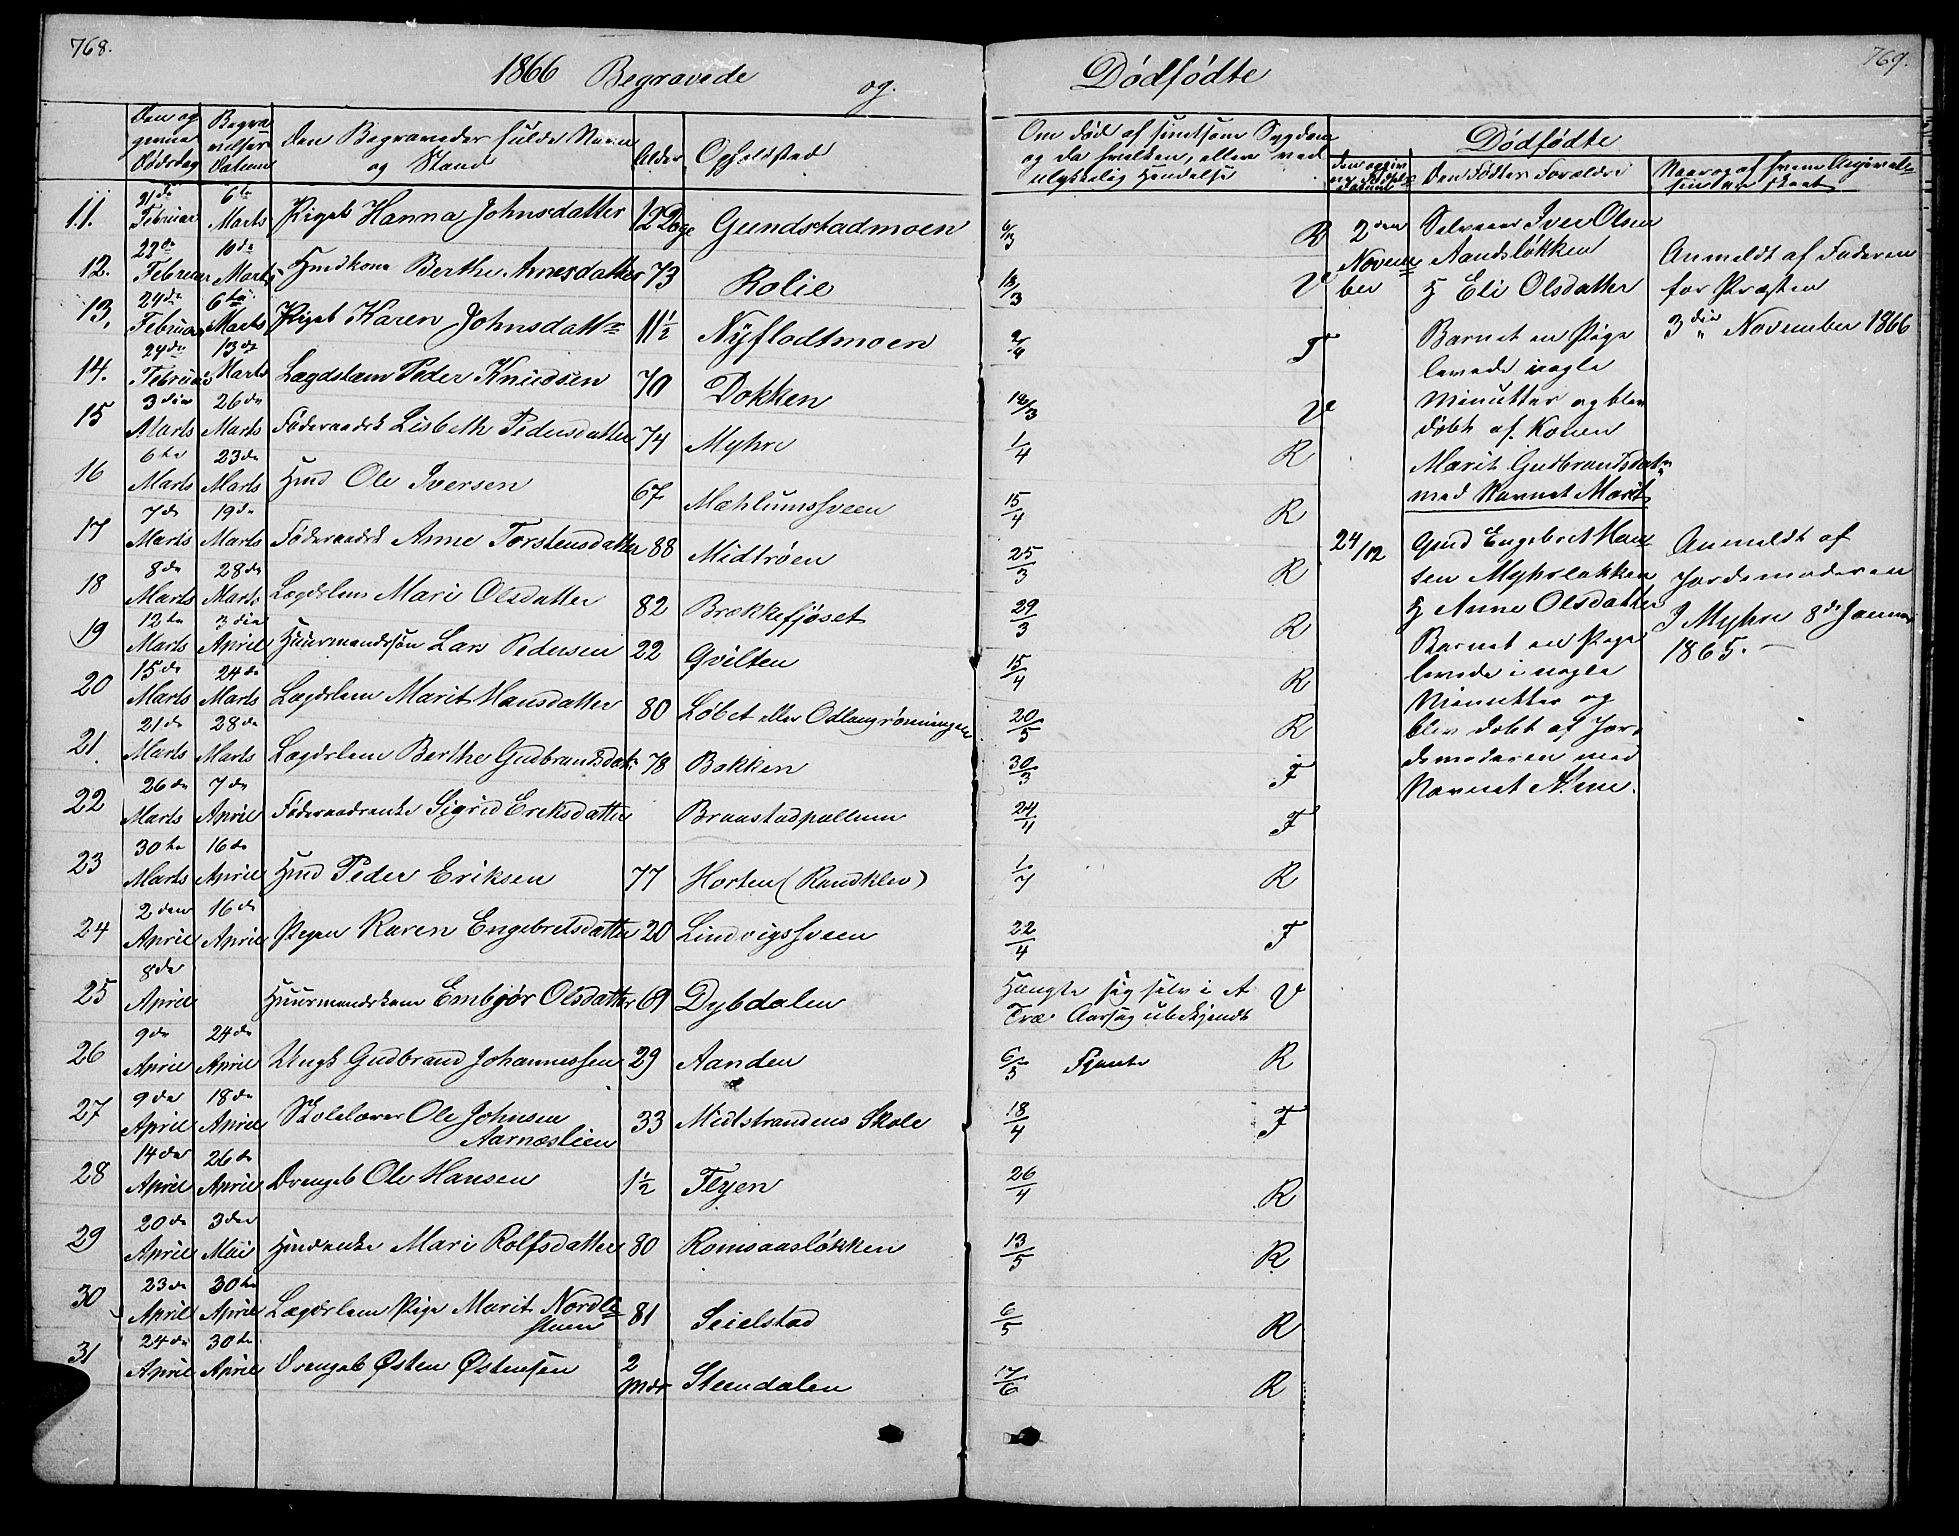 768.
1866 Begravede og
Den og
gnna
Dødsdag
Begra
velses
Datum
Den Begravedes fulde Navn
og Stand
Alder
Opholdsted
11. 21de Februar 6te Marts Pigeb. Hanna Johnsdatter 12 Dage Gundstadmoen
12. 22de Februar 10de Marts Hmdkone Berthe Arnesdatter 73 Rolie
13. 24de Februar 6te Marts Pigeb Karen Johnsdattr 11½ Nyflodtmoen
14. 24de Februar 13de Marts Lægdslem Peder Knudsen 70 Dokken
15 3die Marts 26de Marts Føderaadsk Lisbeth Pedersdatter 74 Myhre
16 6te Marts 23de Marts Hmd Ole Iversen 67 Mæhlumssveen
17 7de Marts 19de Marts Føderaadsk Anne Torstensdatter 88 Midtrøen
18 8de Marts 28de Marts Lægdslem Mari Olsdatter 82 Brækkefjøset
19 12te Marts 3die April Huusmandssøn Lars Pedersen 22 Qvilten
20 15de Marts 24de Marts Lægdslem Marit Hansdatter 80 Løbet eller Odlaugrønningen
21. 21de Marts 28de Marts Lægdslem Berthe Gudbrandsdatr 78 Bakken
22 26de Marts 7de April Føderaadsenke Sigrid Eriksdatter Braastadpallum
23 30te Marts 16de April Hmd Peder Eriksen 77 Horten (Randklev)
24 2den April 16de April Pigen Karen Engebretsdatter 20 Lindvigssveen
25 8de April Huusmandskone Embjør Olsdatter 69 Dybdalen
26 9de April 24de April Ungk Gudbrand Johannessen 29 Aanden
27 9de April 18de April Skolelærer Ole Johnsen Aarnæslien 33 Midtstrandens Skole
28 14de April 26de April Drengeb Ole Hansen 1½ Flyen
29 20de April 3die Mai Hmdenke Mari Rolfsdatter 80 Romsaasløkken
30 23de April 30te April Lægdslem Pige Marit Nordlistuen 81 Seielstad
31 24de April 30te April Drengeb Østen Østensen 2 Mdr Steendalen
769.
Dødfødte
Om død af smitsom Sygdom
og da hvilken, eller ved
ulykkelig Hendelse
Dødfødte
Den Fødtes Forældre
Naar og af hvem Angivelsen er skeet
6/3 R
10/3 V
2/4 F
14/3 V
1/4 R
15/4 R
25/3 R
29/3 R
15/4 R
20/5 R
30/3 F
24/4 F
1/7 R
22/4 F
Hængte sig selv i et V
Træ Aarsag ubekjendt
6/5 R
18/4 F
26/4 R
13/5 R
6/5 R
17/6 R
2den
Novem
ber
Selveier Iver Olsen
Aandsløkken
H Eli Olsdatter
Barnet en Pige
levede nogle
Minutter og blev
døbt af Konen
Marit Gudbrandsdatr
med Navnet Marit
Anmeldt af Faderen
for Præsten
3die November 1866
24/12
Gmd Engebret Han
sen Myhrløkken
H Anne Olsdatter
Barnet en Pige
levede i nogle
Minutter og
blev døbt af Jor
demoderen med
Navnet Anne.
Anmeldt af
Jordemoderen
I Myhre 8de Januar
1865.